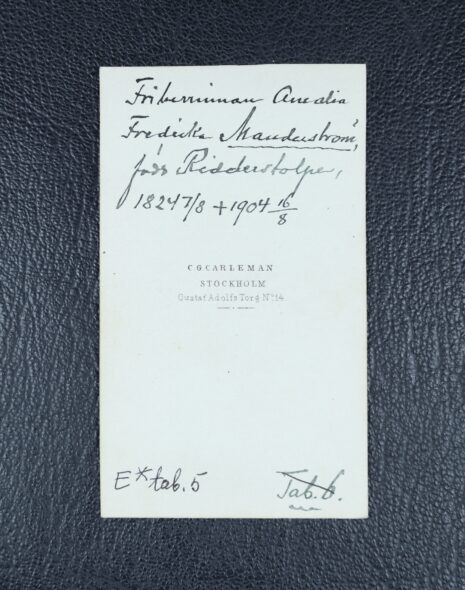 Friherrinnan Amalia
Fredrika Manderström,
född Ridderstolpe,
1824 7/8 + 1904 16/8
C G CARLEMAN
STOCKHOLM
Gustaf Adolfs Torg No 14
E* tab. 5
Tab. 6.